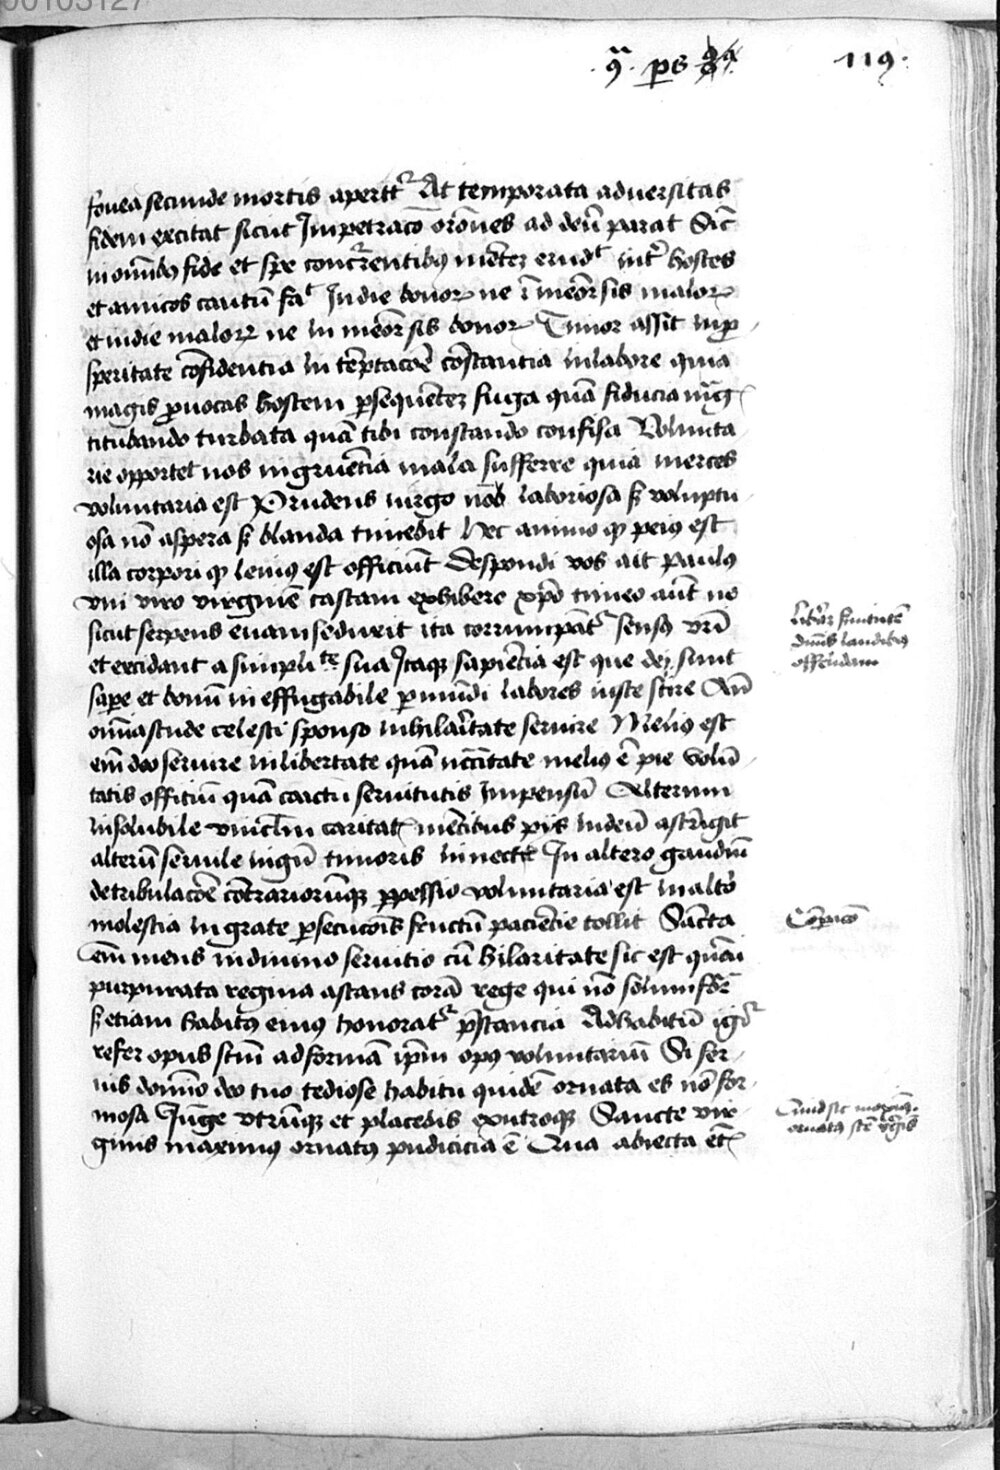 00103127
ps
119.
fouea secunde mortis apertt᷑ At temporata aduersitas
fidem excitat sicut Impetracō orōnes ad deū parat Sic̄
in omībꝯ fide et spe concurrentibꝯ mentez erudꝰ int̄ hostes
et amicos cautū faꝰ In die bonoꝝ ne ī meōr sis maloꝝ
et in die maloꝝ ne in meōr sis bonoꝝ Timor assit in ꝓ
speritate cōfidentia in tēptacōē cōstantia in labore quia
magis ꝓuocas hostem ꝑsequentez fuga quā fiducia
titubando turbata quā tibi constando confisa Volunta
rie opportet nos ingruētia mala sufferre quia merces
voluntaria est Prudens virgo nō laboriosa sꝫ voluptu
osa nō aspera sꝫ blanda timebit hec animo ꝙ peiꝯ est
illa corpori ꝙ leuiꝯ est officiūt Despondi vos ait paulꝯ
vni viro virginē castam exhibere xp̄o timeo aūt ne
sicut serpens euam seduxit ita corrumpāt᷑ sensꝯ vrī
et excidant a simpliᵗᵉ sua Itaqꝫ sapiētia est que dei sunt
saꝑe et bonū in effugabile ꝑ mūdi labores iuste scire
omīa stude celesti sponso in hilaritate seruire Meliꝯ est
eīm deo seruire in libertate quā ncc̄itate meliꝯ ē pie volū
tatis officiū quā coactū seruitutis Impensū Alterum
Insolubile vinclm̄ caritatꝭ mētibus pijs in deū astrīgit
alterū seruile iugū timoris innectit In altero gaudiū
de tribulacōē cōtrariorūqꝫ ꝑpessio voluntaria est in altō
molestia ingrate ꝑsecucōis fructū paciētie tollit Sācta
eīm mens in diuino seruitio cū hilaritate sic est quām
purpurata regina astans corā rege qui nō solum
sꝫ etiam habitꝯ eiꝯ honorat᷑ p̄stancia Ad habitū igr̄
refer opus scūm ad formā ip̄m opꝯ voluntariū Si ser
uis domīo deo tuo tediose habitu quidē ornata es nō for
mosa Iunge vtrūqꝫ et placebis ex utroqꝫ Sancte vir
ginis maximꝯ ornatꝯ pudicicia ē Qua abiecta etꝭ
diuīs laudibꝯ
Cōꝑacō
Quid sit maximꝯ
ornatꝯ scē v̄gīs